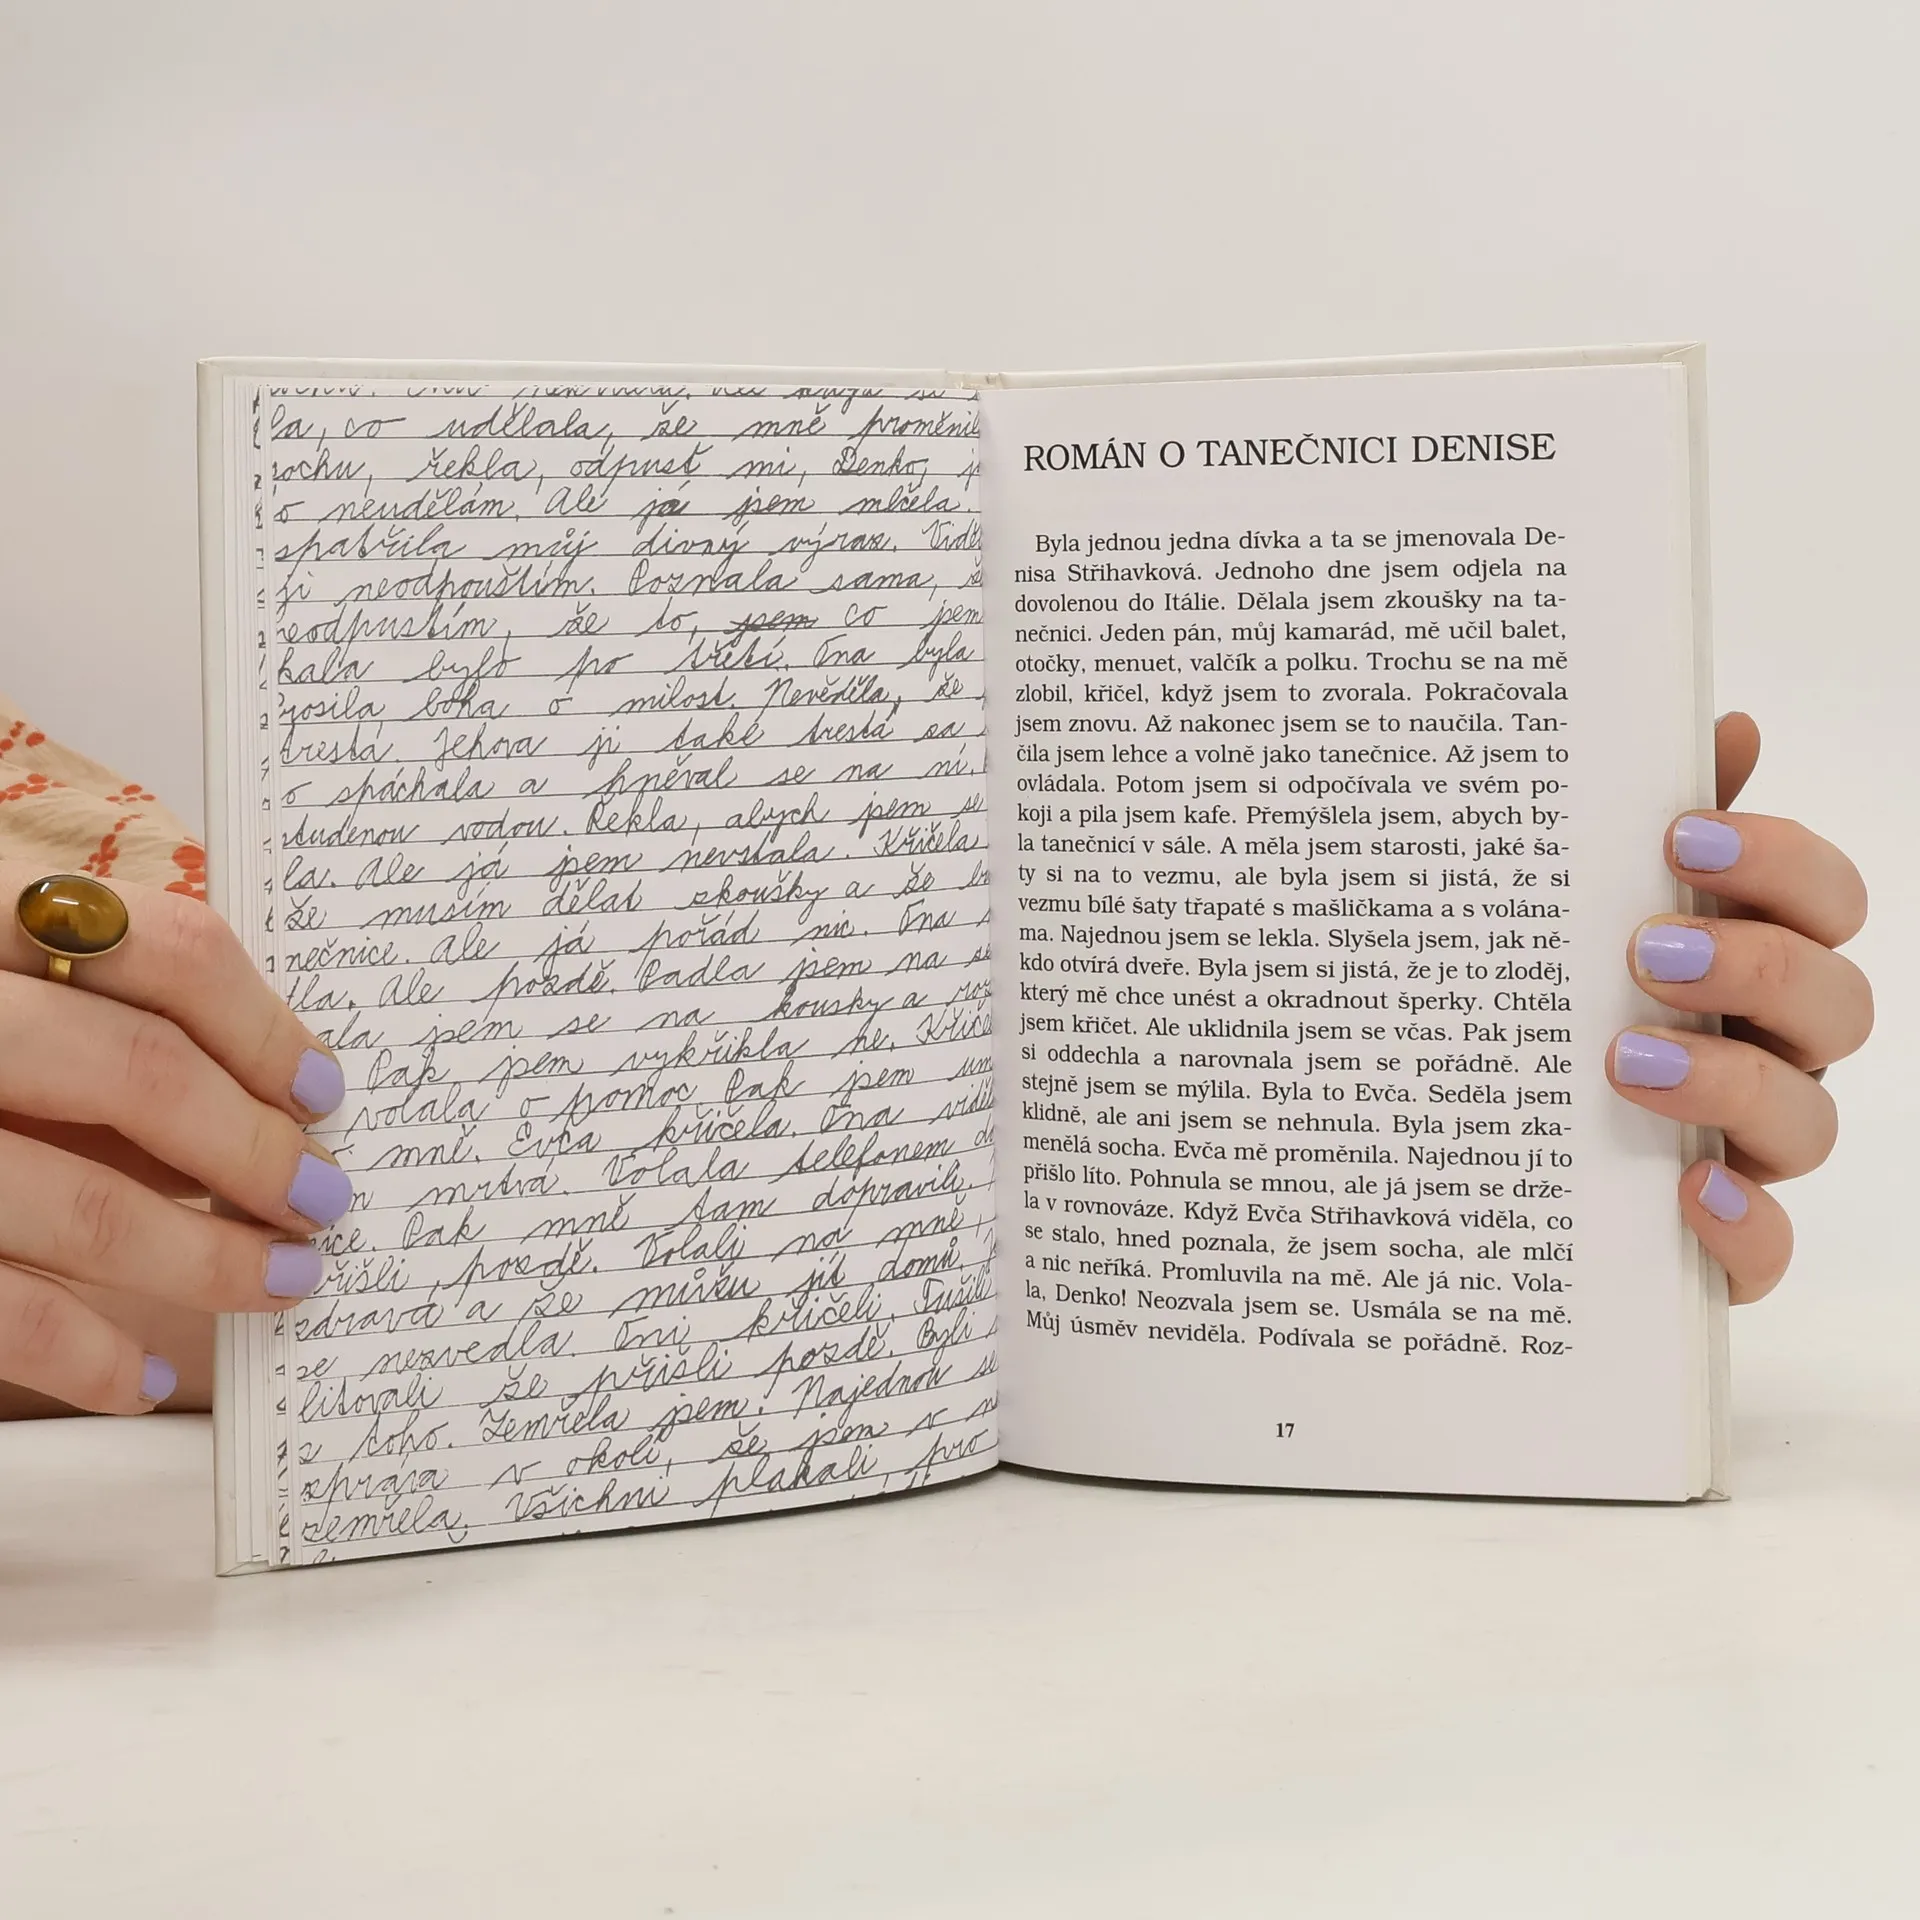 la, co udělala, že mně proměnil
sochu, řekla, odpusť mi, Denko, j
o neudělám. Ale já jsem mlčela.
spatřila můj divný výraz. Vidě
ji neodpouštím. Poznala sama, ž
neodpustím, že to, jsem co jsem
kala bylo po třetí. Ona byla
prosila boha o milost. Nevěděla, že
trestá. Jehova ji také trestá za
o spáchala a hněval se na ní.
studenou vodou. Řekla, abych jsem se
la. Ale já jsem nevstala. Křičela
že musím dělat zkoušky a že bu
nečnice. Ale já pořád nic. Ona
la. Ale pozdě. Padla jsem na ze
ala jsem se na kousky a roz
Pak jsem vykřikla ne. Křiče
volala o pomoc. Pak jsem um
mně. Evča křičela. Ona vidě
m mrtvá. Volala telefonem do
nice. Pak mně tam dopravili.
řišli, pozdě. Volali na mně,
zdravá a že můžu jít domů.
se nezvedla. Oni křičeli. Tušili
litovali že přišli pozdě. Byli
z toho. Zemřela jsem. Najednou se
zpráva v okolí, že jsem v n
zemřela. Všichni plakali, pro
ROMÁN O TANEČNICI DENISE
Byla jednou jedna dívka a ta se jmenovala De-
nisa Střihavková. Jednoho dne jsem odjela na
dovolenou do Itálie. Dělala jsem zkoušky na ta-
nečnici. Jeden pán, můj kamarád, mě učil balet,
otočky, menuet, valčík a polku. Trochu se na mě
zlobil, křičel, když jsem to zvorala. Pokračovala
jsem znovu. Až nakonec jsem se to naučila. Tan-
čila jsem lehce a volně jako tanečnice. Až jsem to
ovládala. Potom jsem si odpočívala ve svém po-
koji a pila jsem kafe. Přemýšlela jsem, abych by-
la tanečnicí v sále. A měla jsem starosti, jaké ša-
ty si na to vezmu, ale byla jsem si jistá, že si
vezmu bílé šaty třapaté s mašličkama a s volána-
ma. Najednou jsem se lekla. Slyšela jsem, jak ně-
kdo otvírá dveře. Byla jsem si jistá, že je to zloděj,
který mě chce unést a okradnout šperky. Chtěla
jsem křičet. Ale uklidnila jsem se včas. Pak jsem
si oddechla a narovnala jsem se pořádně. Ale
stejně jsem se mýlila. Byla to Evča. Seděla jsem
klidně, ale ani jsem se nehnula. Byla jsem zka-
menělá socha. Evča mě proměnila. Najednou jí to
přišlo líto. Pohnula se mnou, ale já jsem se drže-
la v rovnováze. Když Evča Střihavková viděla, co
se stalo, hned poznala, že jsem socha, ale mlčí
a nic neříká. Promluvila na mě. Ale já nic. Vola-
la, Denko! Neozvala jsem se. Usmála se na mě.
Můj úsměv neviděla. Podívala se pořádně. Roz-
17